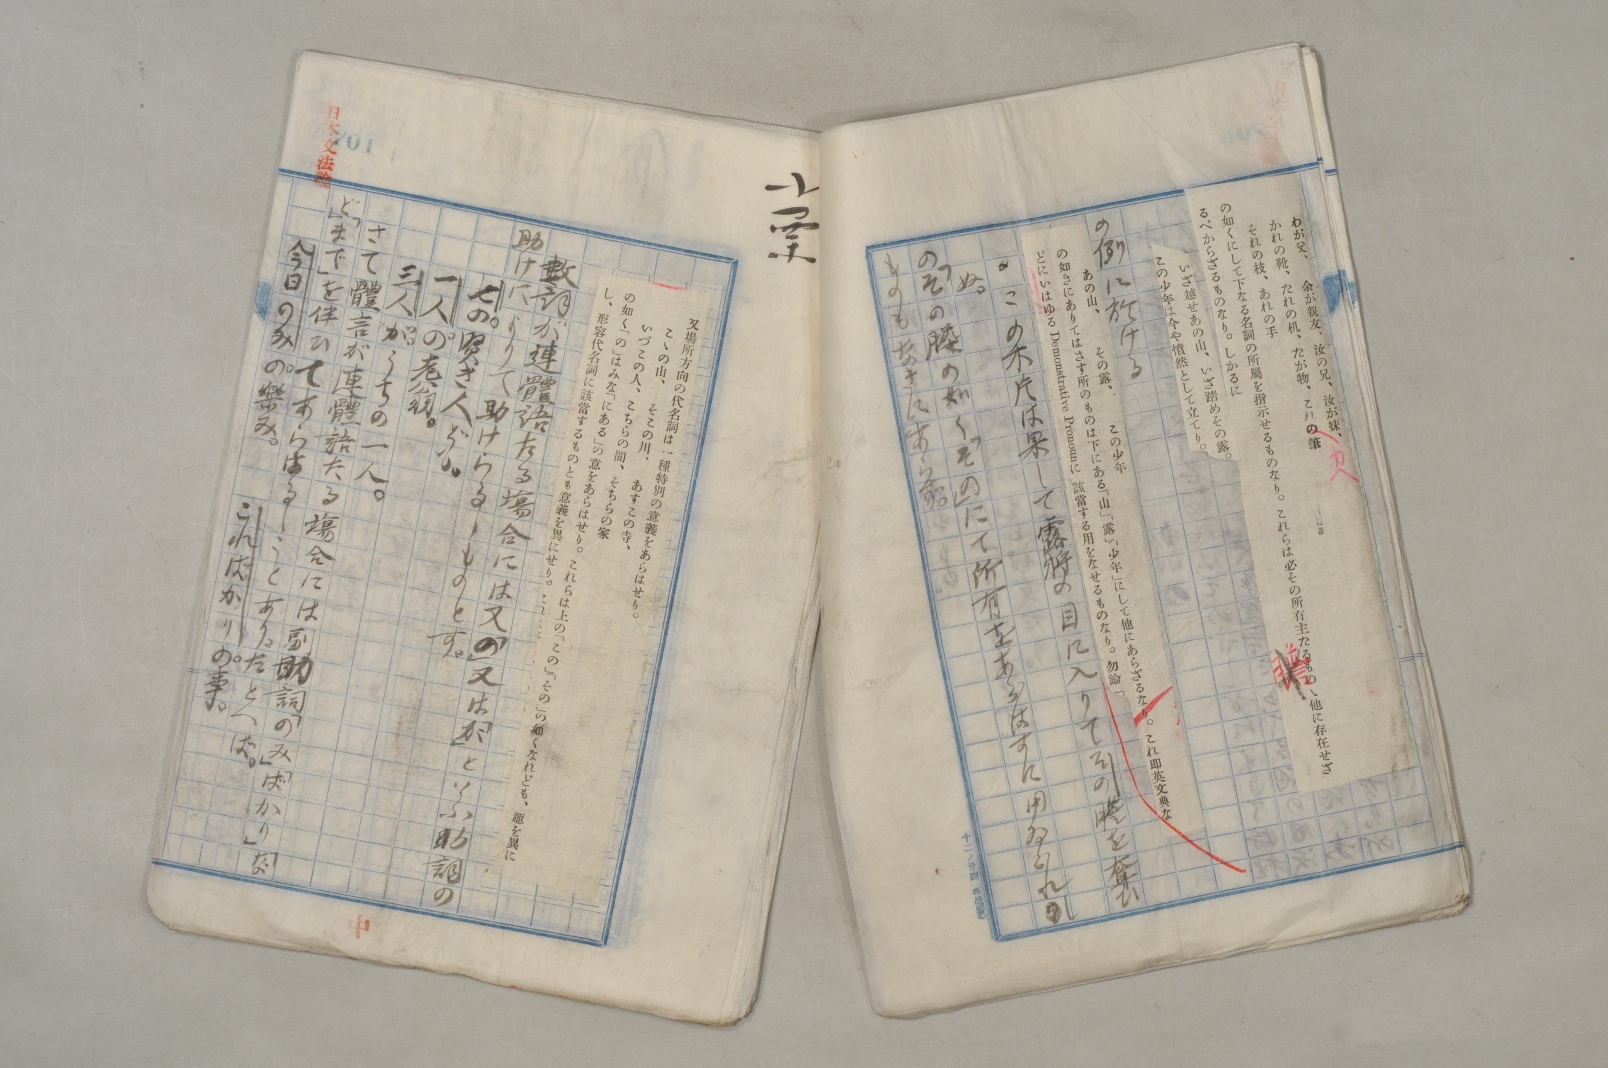 わが父、余が親友、汝の兄、汝が妹、
かれの靴、たれの机、たが物、これの筆
それの枝、あれの手
の如くにして下なる名詞の所屬を指示せるものなり。これらは必その所有主たるもの、他に存在せざ
るべからざるものなり。しかるに
いざ越せあの山、いざ踏めその露。
この少年は今や憤然として立てり。
の例に於ける
あの山、その露、この少年
の如きにありてはさす所のものは下にある「山」「露」「少年」にして他にあらざるなり。これ即英文典な
どにいはゆる Demonstrative Pronoun に該當する用をなせるものなり。勿論「
この木片は果して露將の目に入りてその膽を奪ひ
ぬ。
の「その膽」の如く「その」にて所有をあらはすに用ゐられし
ものもなきにあらず。
小栗
又場所方向の代名詞は一種特別の意義をあらはせり。
こゝの山、そこの川、あすこの寺、
いづこの人、こちらの間、そちらの家
の如く「の」はみな「にある」の意をあらはせり。これらは上の「この」「その」の如くなれども、趣を異に
し、形容代名詞に該當するものとも意義を異にせり。
數詞が連體語たる場合には又「の」又は「が」といふ助詞の
助けによりて助けらるゝものとす。
七の賢き人ども。
一人の老翁。
三人がうちの一人。
さて體言が連體語たる場合には副助詞の「のみ」「ばかり」「な
ど」「まで」を伴ひてあらはるゝことあり。たとへば。
今日のみの樂み。
こればかりの事。
日本文法論
中